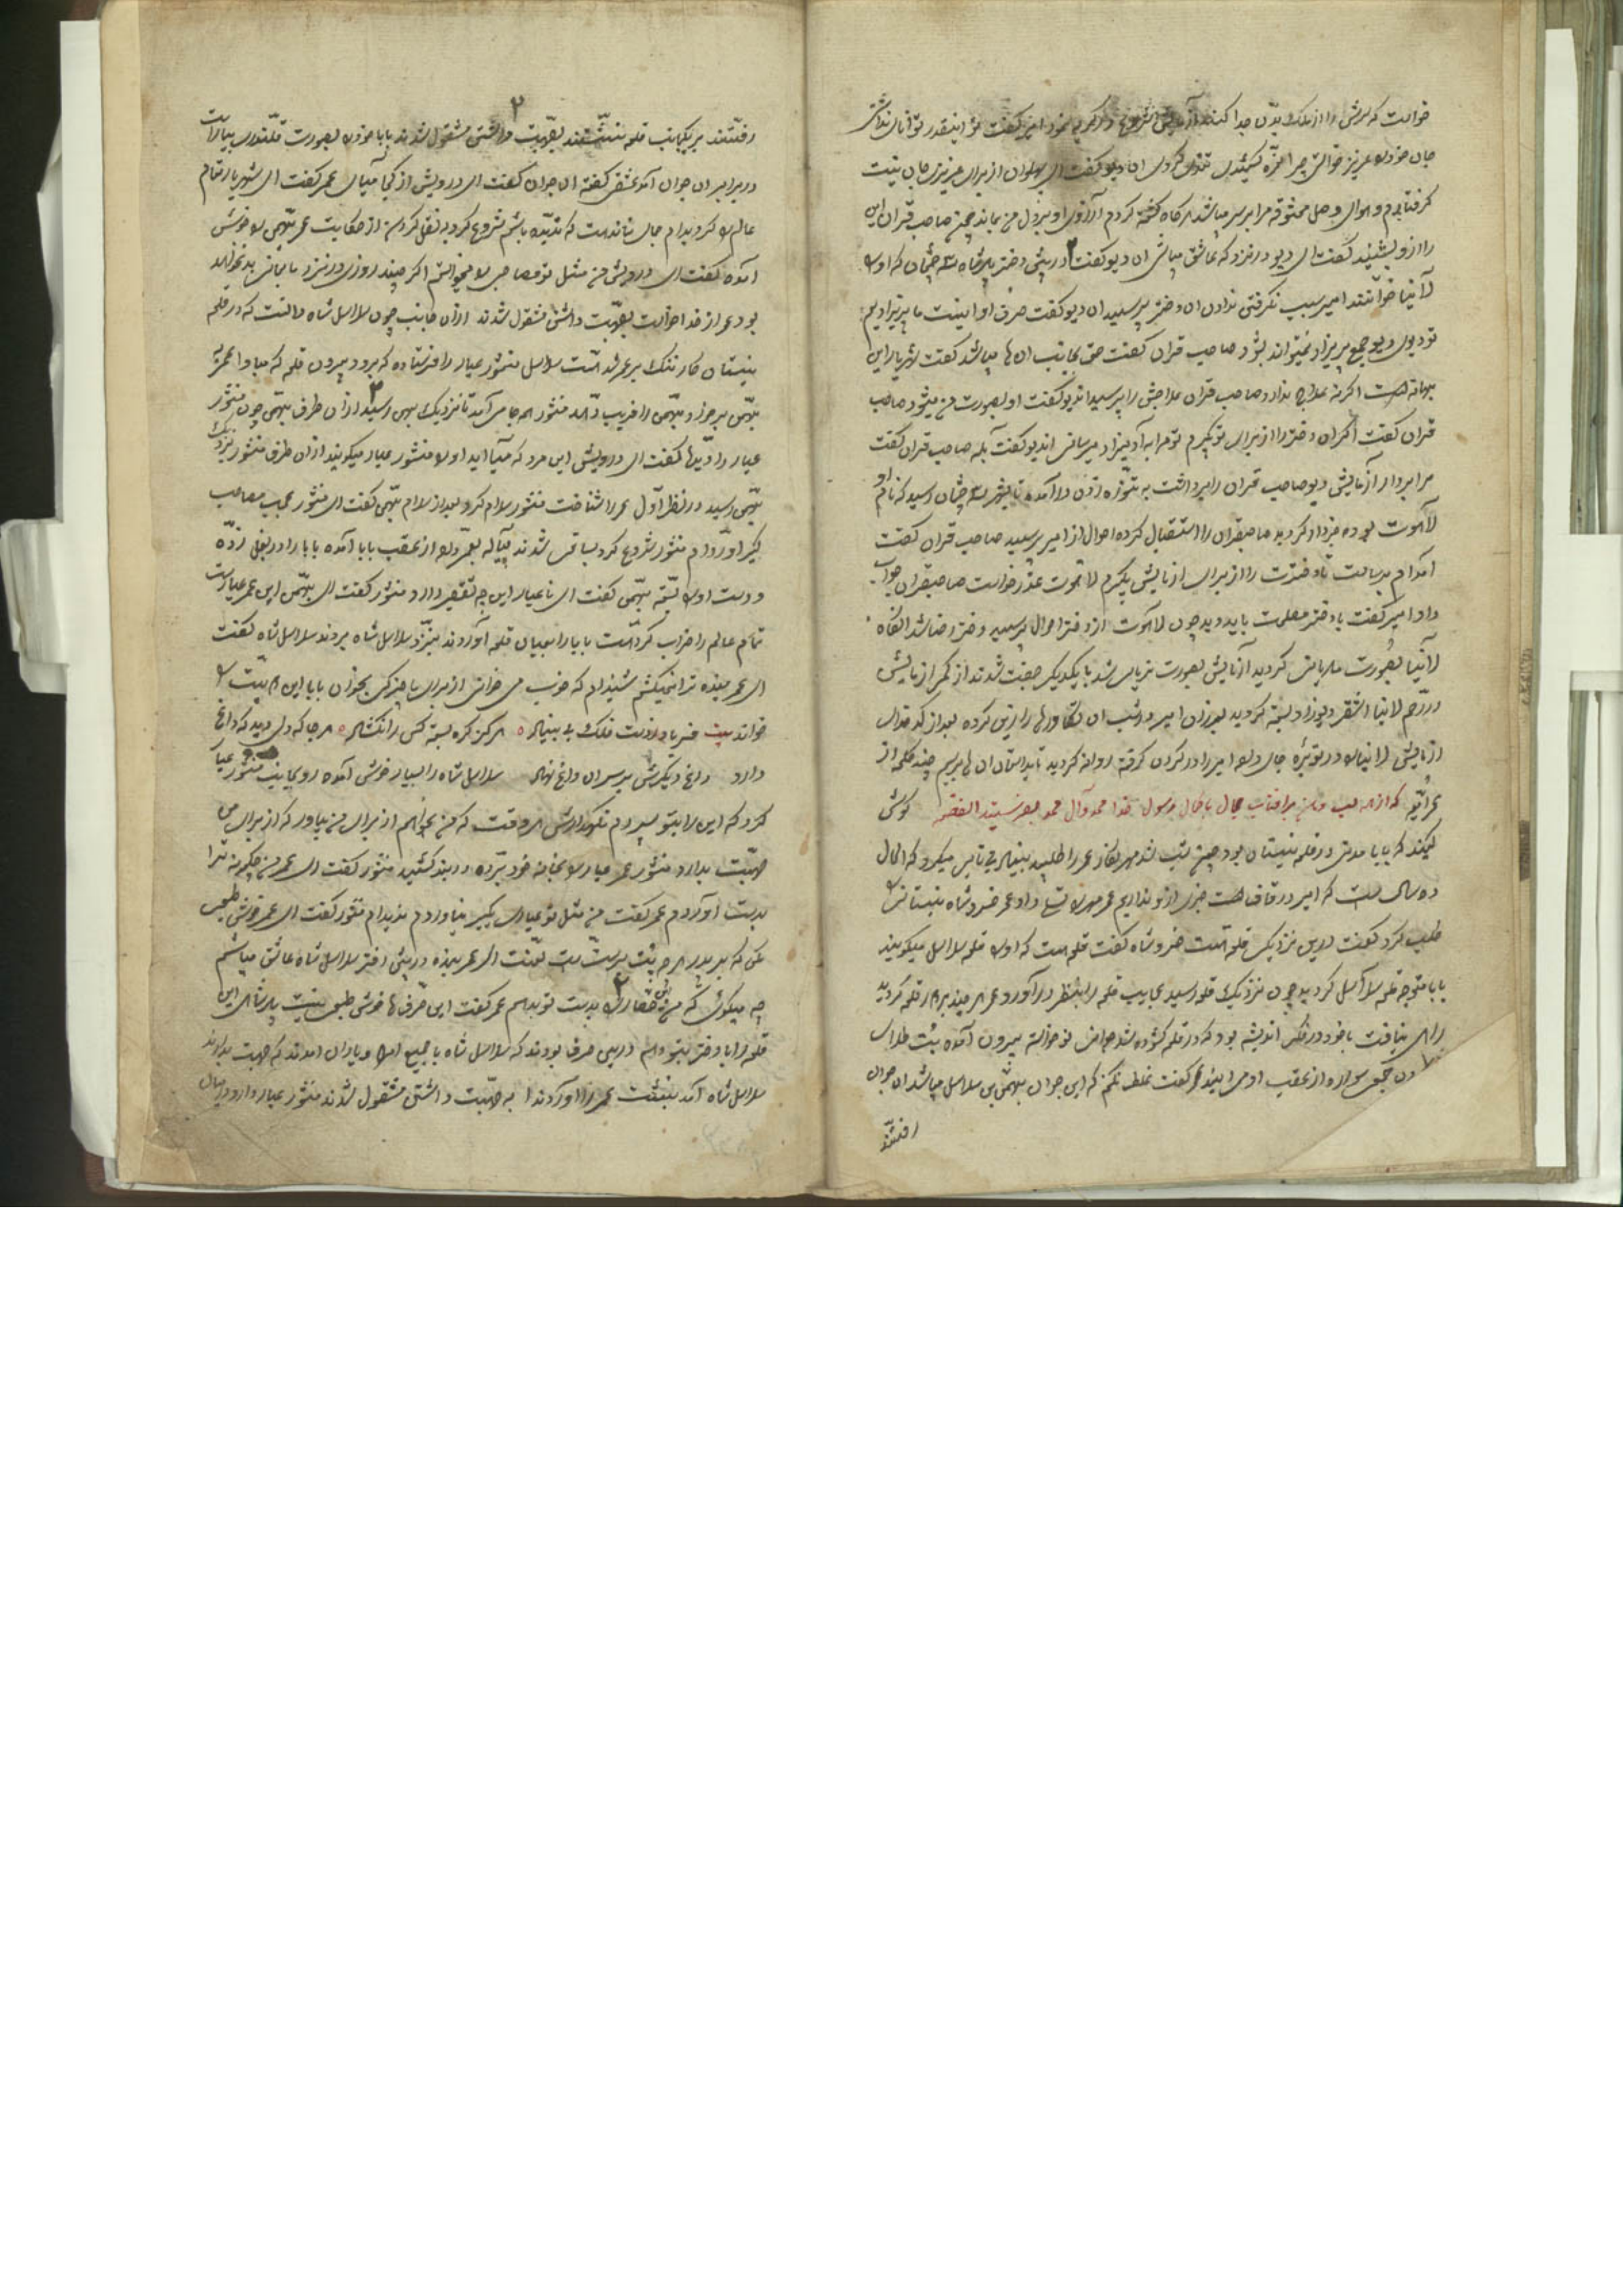 خواست که سرش را از ملک بدن جدا کند آزمایش شروع در گریه نمود امیر گفت تو اینقدر توانا نداشتی
جان خود عزیز خواستی چرا گفت ای پهلوان از برای عزیزی جان نیست
گرفتارم و هوای وصل معشوقه مرا بر سر میباشد هرگاه کشته گردم آرزوی او بر دل من بماند چون صاحب قران این
را از او بشنید گفت ای دیو در نزد که عاشق میباشی ان دیو گفت در پیش دختر پادشاه سه چشمان که او را
لانیا خوانند امیر سبب نگرفتن ندادن ان دختر پرسید ان دیو گفت حرف او اینست ما پریزادیم
تو دیوی دیو جمع پریزاد نمیتواند بشود صاحب قران گفت حق بجانب ان ها میباشد گفت شهریار این
بهانه است اگر نه علاج ندارد صاحب قران علاجش را پرسید اندیو گفت او بصورت من میشود صاحب
قران گفت اگر ان دختر را از برای تو بگیرم تو مرا به آدمیزاد میرسانی اندیو گفت بله صاحب قران گفت
مرا بردار آزمایش دیو صاحب قران را برداشت به تنوره زدن در آمده تا بشهر سه چشمان رسید که نام او
لاهوت بوده خبردار گردید صاحبقران را استقبال کرده احوال از امیر پرسید صاحب قران گفت
آمده‌ام برسالت تا دخترت را از برای ازمایش بگیرم لاهوت عذر خواست صاحبقران جواب
داد امیر گفت با دختر مصلحت باید دید چون لاهوت از دختر احوال پرسید دختر رضا شد انگاه
لانیا بصورت مادیانی گردید آزمایش بصورت نریانی شد با یکدیگر جفت شدند از کمر ازمایش
در رحم لانیا اشقر دیوزاد بسته گردید بعد از ان امیر در شب ان تکاور را زین کرده بعد از کدخدای
ازمایش لانیا را در تنوره جای داد امیر را در گردن گرفته روانه گردید تا بداستان ان ها برسیم چند کلمه از
عمر بشنو که از هر لب و دهن برآفتاب جمال با کمال رسول خدا محمد و آل محمد بفرستید الفقه گوش
کنید که بابا مدتی در قلعه نیستان بود چون شب شد مهرنگار عمر را طلبید بنیاد بی تابی میکرد که الحال
ده سال است که امیر در قاف است خبری از او نداریم عمر مهر را تسلی داد عمر خسرو شاه نیستانی را
طلب کرد گفت در این نزدیکی قلعه هست خسروشاه گفت قلعه است که او را قلعه سلاسل میگویند
بابا متوجه قلعه سلاسل گردید چون نزدیک قلعه رسید عجایب قلعه را بنظر در آورد عمر هر چند بر دور قلعه گردید
راهی نیافت با خود در فکر اندیشه بود که در قلعه گشوده شد جوانی نو خواسته بیرون آمده
سوار و از عقب او می آیند عمر گفت غلط نکنم که این جوان بهمن بن سلاسل میباشد ان جوان
رفتند
رفتند بر یکجانب قلعه بنشستند بصحبت داشتن مشغول شدند بابا خود را بصورت قلندری بیاراست
در برابر ان جوان آمد عشق گفته ان جوان گفت ای درویش از کجا میآی عمر گفت ای شهریار تمام
عالم را گردیده‌ام جای نمانده است که ندیده باشم شروع کرد به نقل کردن از حکایت عمر بهمن را خوش
آمده گفت ای درویش من مثل تو مصاحبی را میخواستم اگر چند روزی در نزد ما بمانی بد نخواهد
بود عمر از خدا خواست بصحبت داشتن مشغول شدند از ان جانب چون سلاسل شاه دانست که در قلعه
نیستان کار تنگ بر عمر شده است سلاسل منشور عیار را فرستاده که برود بیرون قلعه که مبادا عمر به
بهمن برخورد و بهمن را فریب دهد منشور همه جا می آمد تا نزدیک بهمن رسید از ان طرف بهمن چون منشور
عیار را دید گفت ای درویش این مرد که میآید او را منشور عیار میگویند از ان طرف منشور نزدیک
بهمن رسید در نظر اول عمر را شناخت منشور سلام کرد بعد از سلام بهمن گفت ای منشور عجب مصاحب
گیر آورده‌ام منشور شروع کرد بساقی شدن پیاله بعمر داد از عقب بابا آمده بابا را در بغل زده
و دست او را بسته بهمن گفت ای نا عیار این چه تقصیر دارد منشور گفت ای بهمن این عمر عیار است
تمام عالم را خراب کرده است بابا را بمیان قلعه آوردند بنزد سلاسل شاه بردند سلاسل شاه گفت
ای عمر بنده ترا نمیکشم شنیده‌ام که خوب می خوانی از برای ما چیزکی بخوان بابا این دو بیت را
خواند بیت فریاد ز دست فلک بی بنیاد هرگز گره بسته کس را نگشاد هر جا که دلی دید که داغی
دارد داغ دیگرش بر سر ان داغ نهاد سلاسل شاه را بسیار خوش آمده رو بجانب منشور عیار
کرد که این را بتو سپردم نگهدارش هر وقت که من بخواهم از برای من بیاور که از برای من
صحبت بدارد منشور عمر عیار را بخانه خود برده در بند کشید منشور گفت ای عمر من چگونه ترا
بدست آوردم عمر گفت من مثل تو عیاری بگیر بیاوردم ندیده‌ام منشور گفت ای عمر خوش طبعی
مکن که بر پدر هر چه بت پرست است لعنت ای عمر بنده در پیش دختر سلاسل شاه عاشق میباشم
چه میگوئی که من این حصار را بدست تو بدهم عمر گفت این حرف ها خوش طبعی نیست پادشاهی این
قلعه را با دختر بتو دهم در این حرف بودند که سلاسل شاه با جمیع امرا و یاران آمدند که صحبت بدارند
سلاسل شاه آمد بنشست عمر را آوردند به صحبت داشتن مشغول شدند منشور عیار دارو در میان